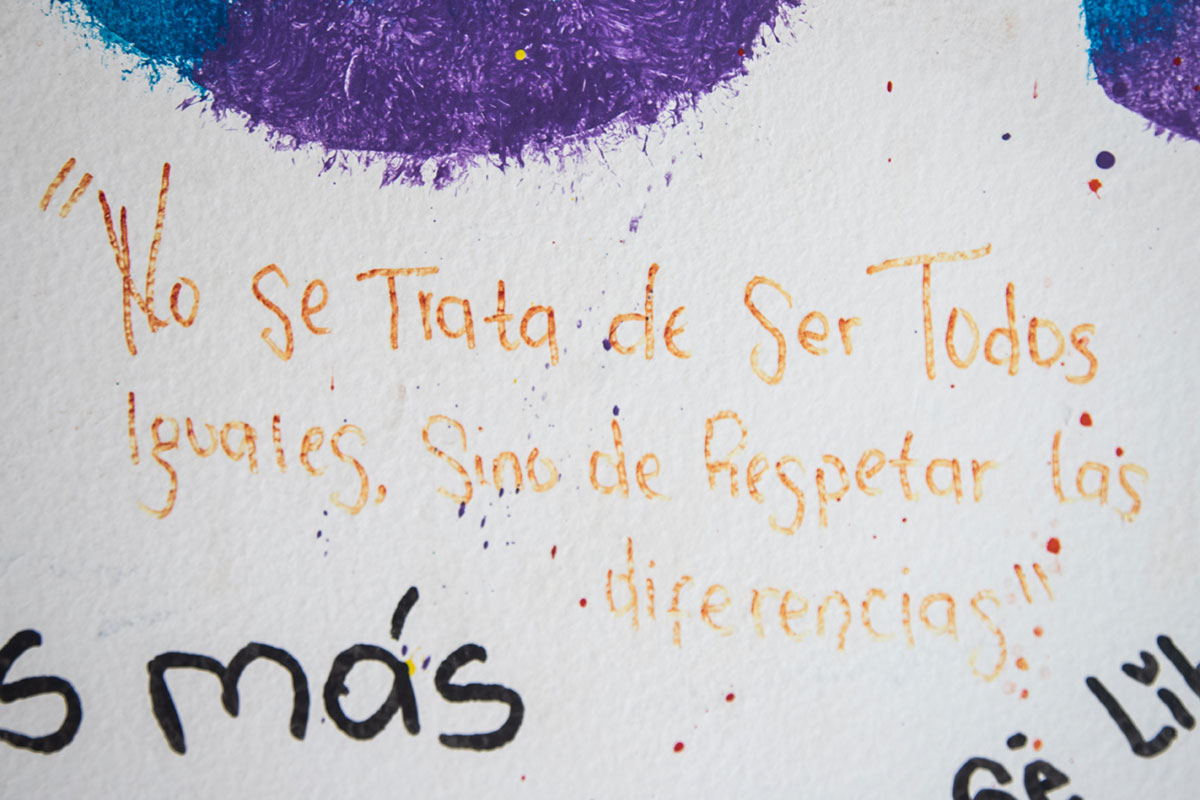 "No se Trata de Ser Todos
Iguales, Sino de Respetar las
diferencias"
más